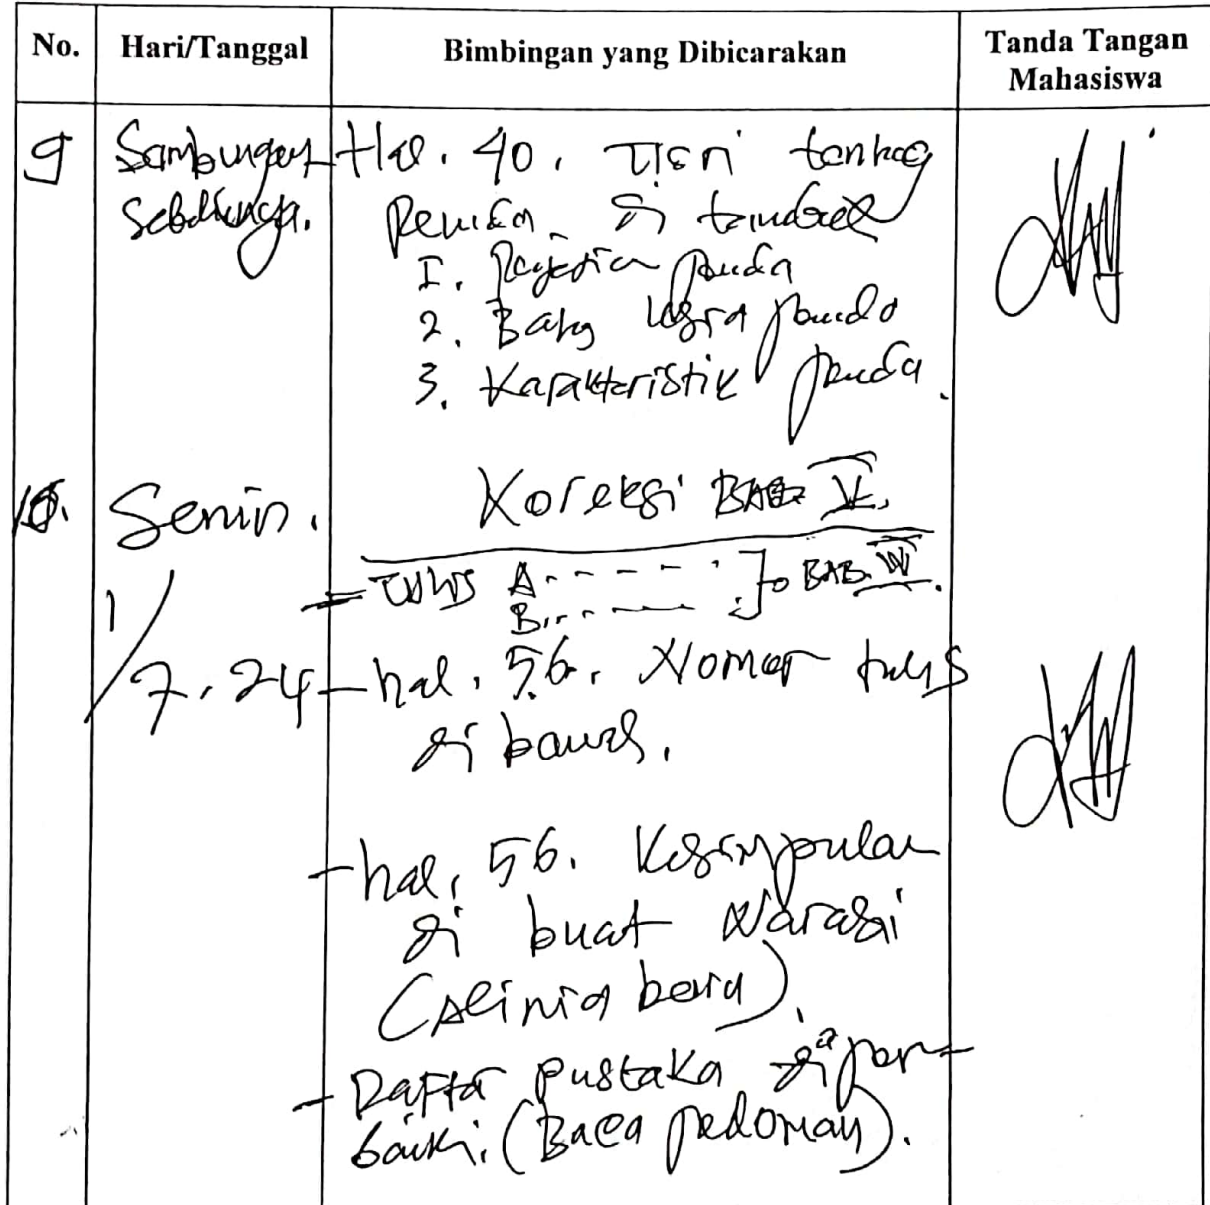 No. Hari/Tanggal Bimbingan yang Dibicarakan Tanda Tangan Mahasiswa
9 Sambungan Hal. 40. Teori tentang
sebelumnya. Pemuda di
1. Pengertian pemuda
2. pemuda
3. Karakteristik pemuda.
10. Senin. Koreksi BAB V.
= A. - - - - - BAB IV.
B. - - - -
1/7.24 - hal. 56. Nomor tulis
di bawah.
- hal. 56. Kesimpulan
di buat Narasi
(Alinia baru).
- Daftar pustaka diper-
baiki. (Baca pedoman).